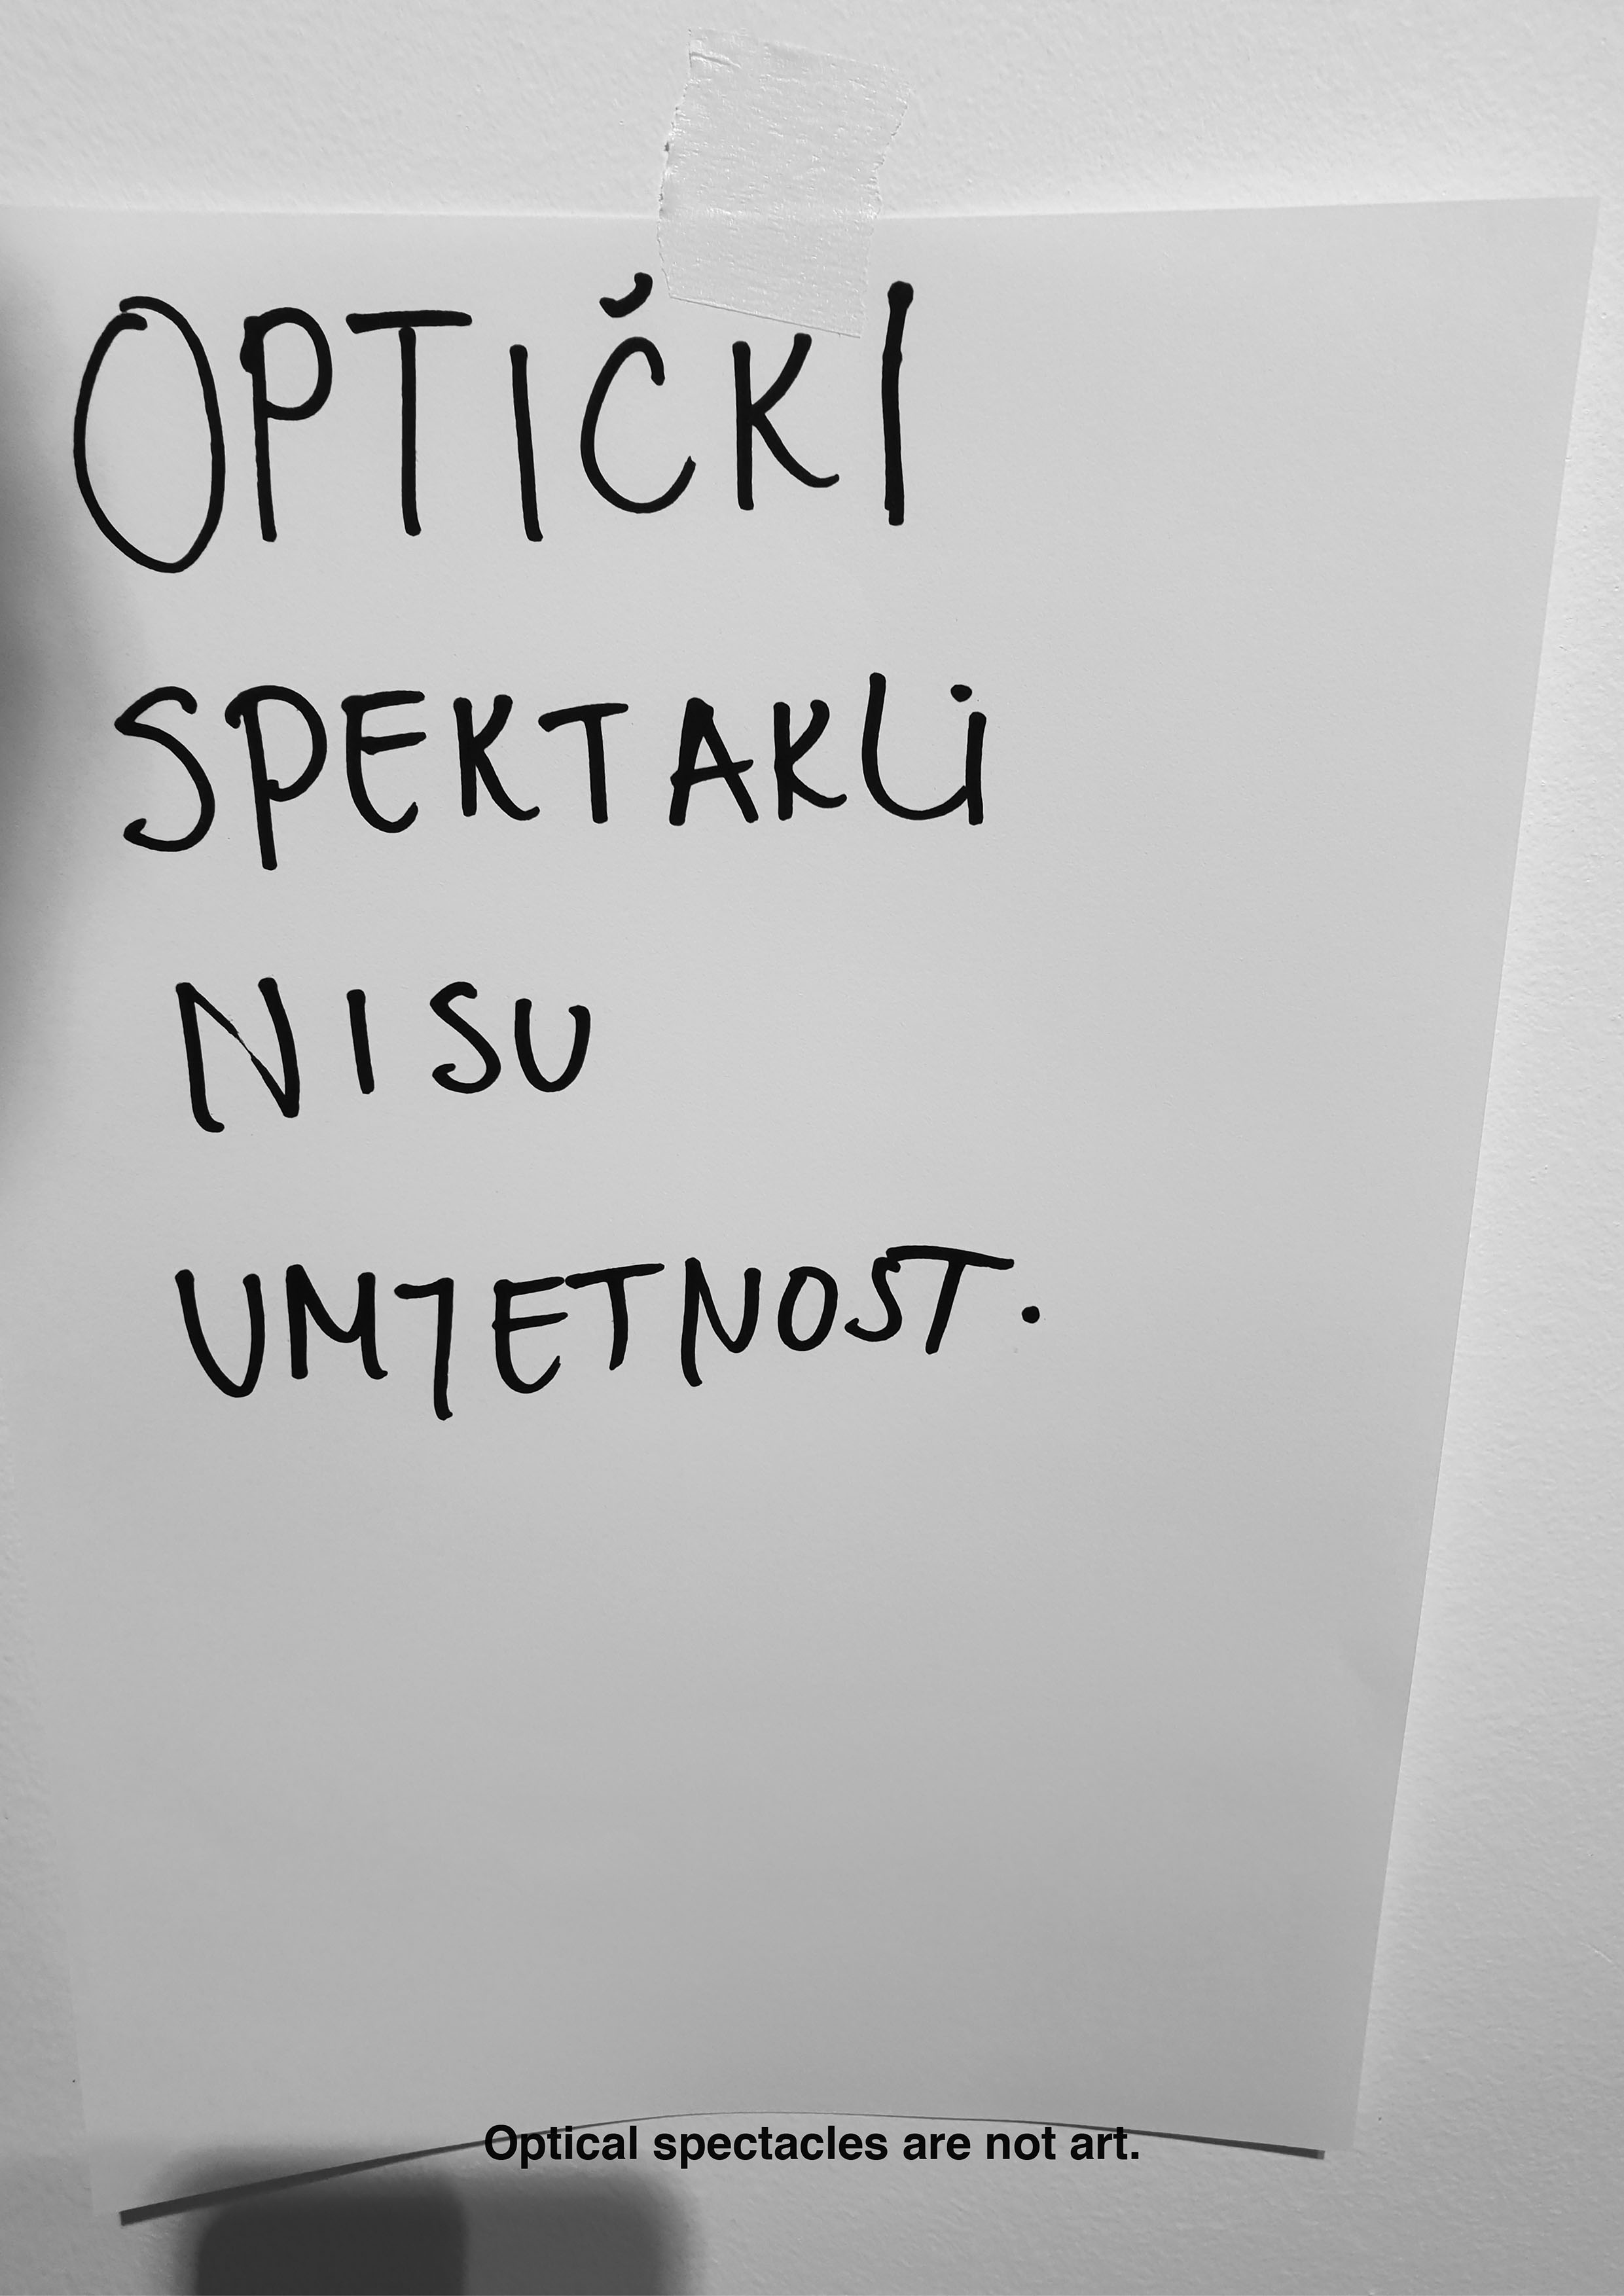 OPTIČKI
SPEKTAKLi
NISU
UMJETNOST.
Optical spectacles are not art.